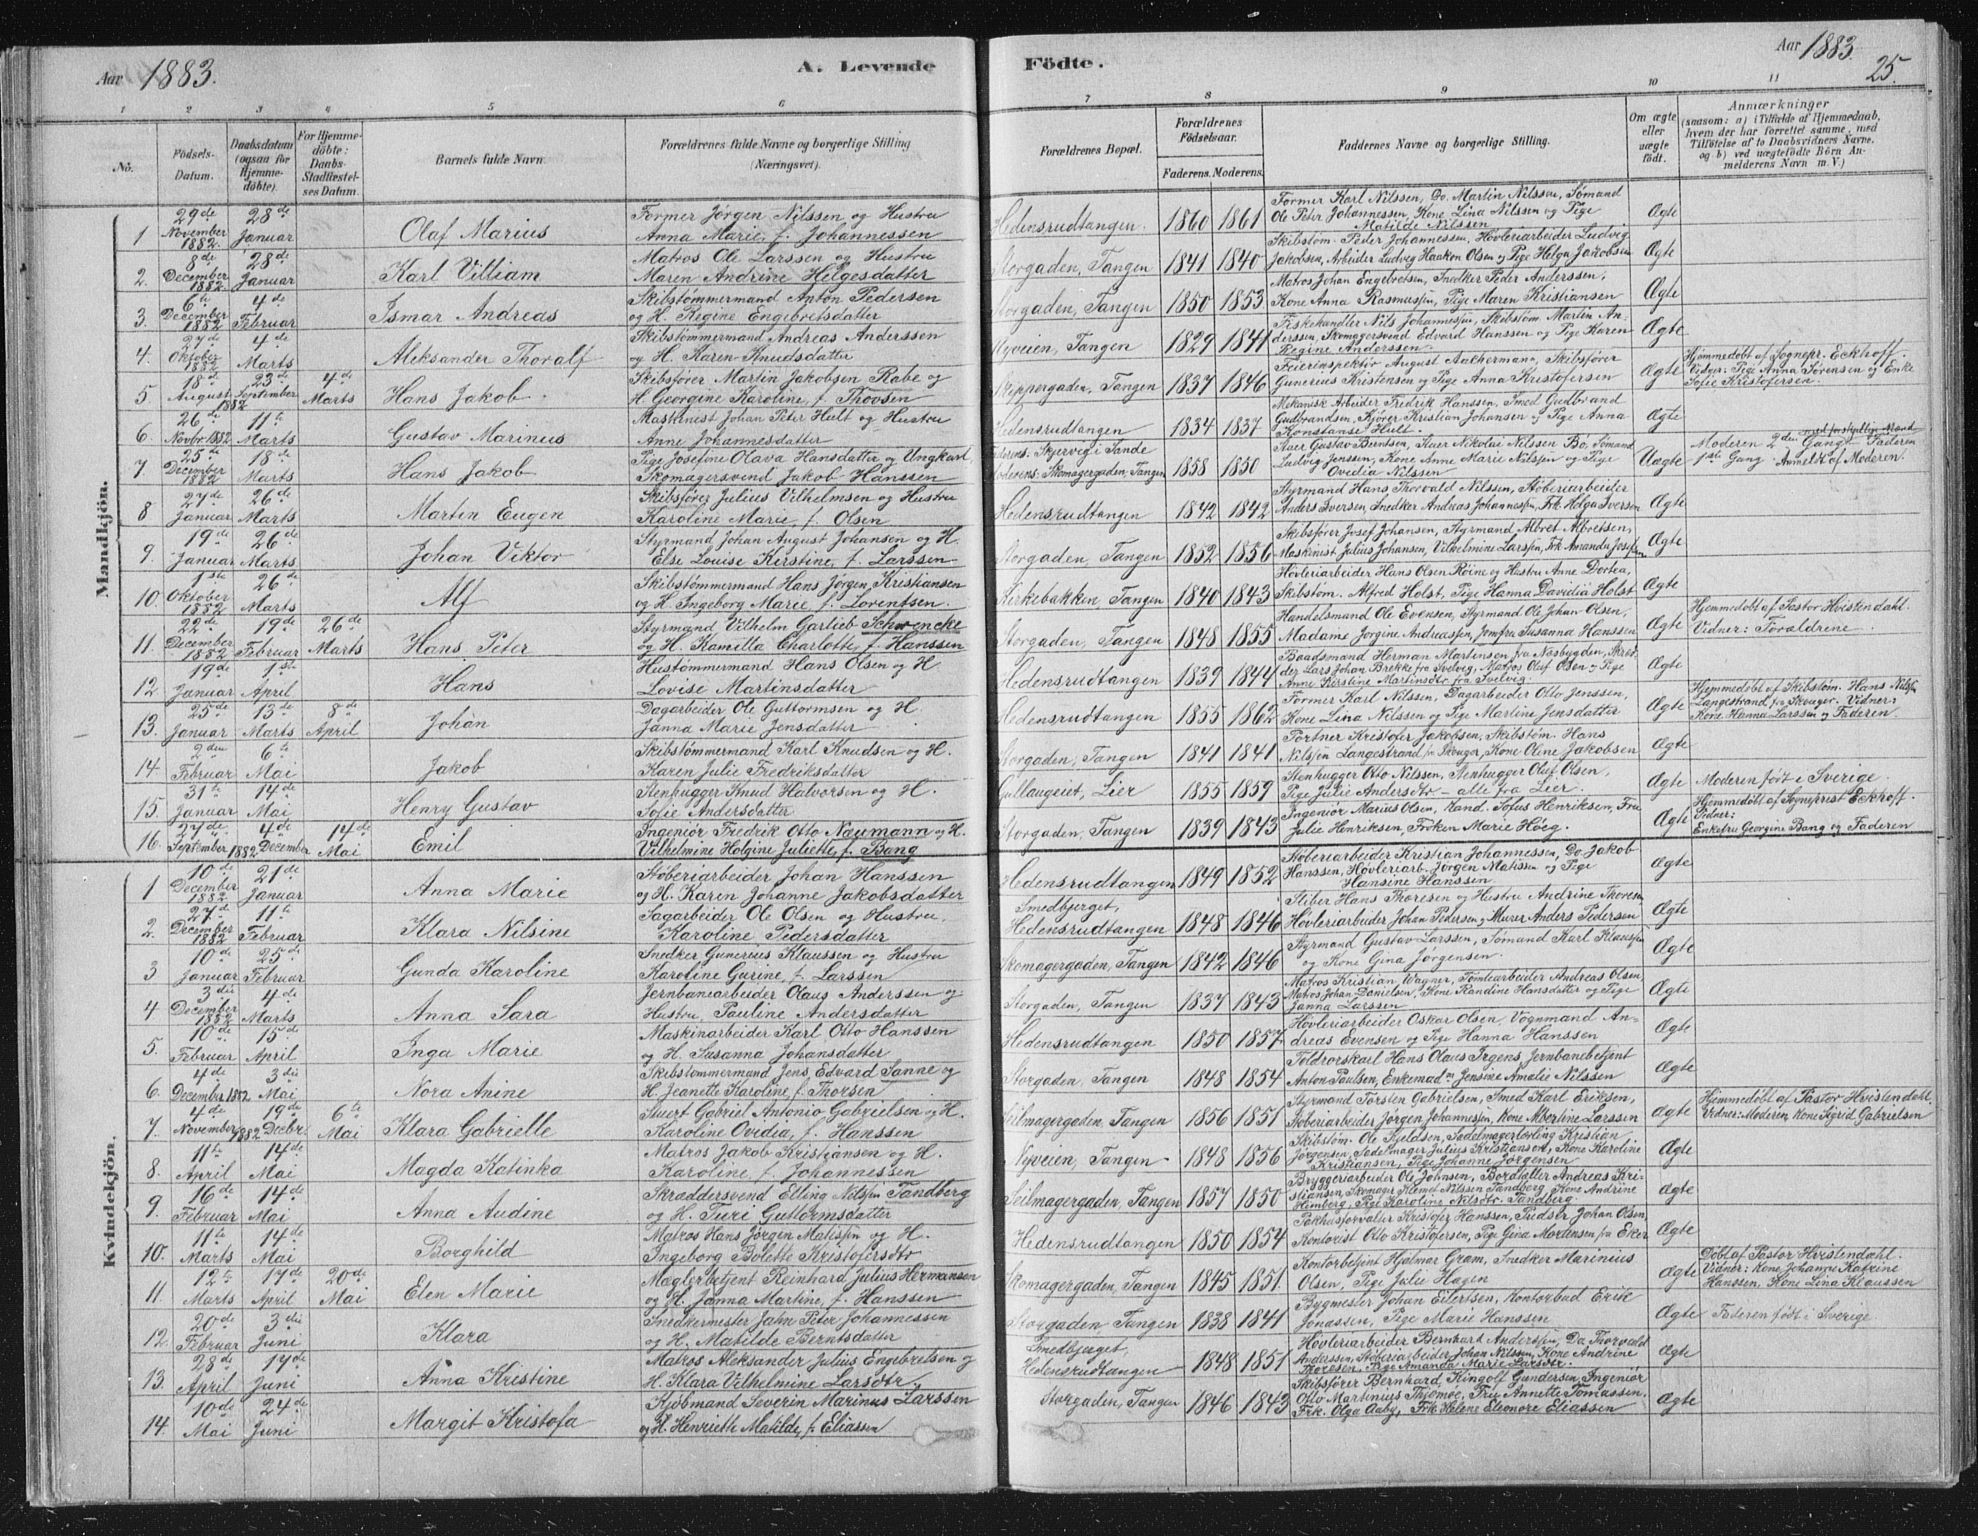 Aar 1883.
A. Levende
Födte.
Aar 1883.
25.
1 2 3 4 5 6 7 8 9 10 11
No.
Födsels-Datum.
Daabsdatum (ogsaa for Hjemmedöbte).
For Hjemmedöbte: Daabs-Stadfæstelses Datum.
Barnets fulde Navn.
Forældrenes fulde Navne og borgerlige Stilling (Næringsvei).
Forældrenes Bopæl.
Forældrenes Födselsaar.
Faderens. Moderens.
Faddernes Navne og borgerlige Stilling.
Om ægte eller uægte födt.
Anmærkninger
(saasom: a) i Tilfælde af Hjemmedaab, hvem der har forrettet samme, med Tilföielse af to Daabsvidners Navne, og b) ved uægtefödte Börn Anmelderens Navn m. V.)
Mandkjön.
1 29de November 1882 28de Januar Olaf Marius Former Jørgen Nilssen og Hustru Anna Marie, f. Johannessen Hedensrudtangen. 1860 1861 Former Karl Nilssen, Do. Martin Nilssen, Sømand Ole Peter Johannessen, Kone Lina Nilssen og Pige Matilde Nilssen Ægte
2. 8de December 1882 28de Januar Karl Villiam Matros Ole Larssen og Hustru Maren Andrine Helgesdatter Storgaden, Tangen 1841 1840 Skibstøm. Peder Johannessen, Høvleriarbeider Ludvig Jakobsen, Arbeider Ludvig Haakon Olsen og Pige Helga Jakobsen Ægte
3. 6te December 1882 4de Februar Ismar Andreas Skibstømmermand Anton Pedersen og H. Regine Engebretsdatter Storgaden, Tangen 1850 1853 Matros Johan Engebretsen, Snedker Peder Anderssen, Kone Anna Rasmussen, Pige Maren Kristiansen Ægte
4. 27de Oktober 1882 4de Marts Aleksander Thoralf Skibstømmermand Andreas Anderssen og H. Karen Knudsdatter Nyveien, Tangen 1829 1841 Fiskehandler Nils Johannesen, Skibstøm Martin Anderssen, Skomagersvend Edvard Hanssen og Pige Karen Regine Anderssen Ægte
5 18de August 1882 23de September 4de Marts Hans Jakob. Skibsfører Martin Jakobsen Rabe og H. Georgine Karoline, f. Thovsen Skippergaden, Tangen 1837 1846 Feierinspektør August Aachermann, Skibsfører Gunerius Kristensen og Pige Anna Kristofersen Ægte Hjemmedøbt af Sognepr. Eckhoff. Vidner: Pige Anna Sørensen og Enke Sofie Kristofersen.
6. 26de Novbr. 1882 11te Marts Gustav Marinus Maskinist Johan Peter Hult og Hustru Anne Johannesdatter Hedensrudtangen 1834 1837 Mekanisk Arbeider Fredrik Hanssen, Smed Gudbrand Gudbrandsen, Kjører Kristian Johansen og Pige Anna Konstanse Hult. Ægte
7 25de December 1882 18de Marts Hans Jakob Pige Josefine Olava Hansdatter og Ungkarl Skomagersvend Jakob Hanssen Faderens: Skjervig i Sande Moderens: Skomagergaden, Tangen 1858 1850 Stuer Gustav Berntsen, Stuer Nikolai Nilssen Bo, Sømand Ludvig Jenssen, Kone Anne Marie Nilssen og Pige Ovedia Nilssen Uægte Moderen 2den Gang med forskjellig Mand Faderen 1ste Gang. Anmeldt af Moderen.
8 27de Januar 26de Marts Martin Eugen Skibsfører Julius Vilhelmsen og Hustru Karoline Marie, f. Olsen Hedensrudtangen 1842 1842 Styrmand Hans Thorvald Nilssen, Støberiarbeider Anders Iversen, Snedker Andreas Johannessen, Frk. Helga Iversen Ægte
9. 19de Januar 26de Marts Johan Viktor Styrmand Johan August Johansen og H. Else Louise Kirstine, f. Larssen Storgaden, Tangen 1852 1856 Skibsfører Josef Johansen, Styrmand Albret Albretsen, Maskinist Julius Johansen, Vilhelmine Larssen, Frk. Amanda Josefsen Ægte
10. 1ste Oktober 1882 26de Marts Alf Skibstømmermand Hans Jørgen Kristiansen og H. Ingeborg Marie, f. Lorentsen Kirkebakken, Tangen 1840 1843 Høvleriarbeider Hans Olsen Røine og Hustru Anne Dortea, Skibstøm. Alfred Holst, Pige Hanna Davidia Holst Ægte
11. 22de December 1882 19de Februar 26de Marts Hans Peter Styrmand Vilhelm Garlieb Schwencke og H. Kamilla Charlotte, f. Hanssen Storgaden, Tangen 1848 1855 Handelsmand Ole Evensen, Styrmand Ole Johan Olsen, Madame Jørgine Andreassen, Jomfru Susanna Hanssen Ægte Hjemmedøbt af Pastor Hvistendahl. Vidner: Forældrene.
12 19de Januar 1ste April Hans Hustømmermand Hans Olsen og H. Lovise Martinsdatter Hedensrudtangen 1839 1844 Baadsmand Herman Martinsen fra Næsbygden, Skræder Lars Johan Brekke fra Svelvig, Matros Oluf Olsen og Pige Anne Kirstine Martinsdtr fra Svelvig. Ægte
13. 25de Januar 13de Marts 8de April Johan Dagarbeider Ole Guttormsen og H. Janna Marie Jensdatter Hedensrudtangen 1855 1862 Former Karl Nilssen, Dagarbeider Otto Jenssen, Kone Lina Nilssen og Pige Martine Jensdatter Ægte Hjemmedøbt af Skibstøm. Hans Nilssen Langestrand fra Skouger. Vidner: Kone Hanna Larssen og Faderen
14. 2den Februar 6te Mai Jakob Skibstømmermand Karl Knudsen og H. Karen Julie Fredriksdatter Storgaden, Tangen 1841 1841 Portner Kristofer Jakobsen, Skibstøm. Hans Nilssen Langestrand fra Skouger, Kone Oline Jakobsen Ægte
15. 31te Januar 14de Mai Henry Gustav Stenhugger Knud Halvorsen og H. Sofie Andersdatter Gullaugeiet, Lier 1855 1859 Stenhugger Otto Nilssen, Stenhugger Oluf Olsen, Pige Julie Andersdtr – alle fra Lier. Ægte Moderen født i Sverige.
16. 27de September 1882 4de December 14de Mai Emil Ingeniør Fredrik Otto Naumann og H. Vilhelmine Holgine Juliette, f. Bang Storgaden, Tangen 1839 1843 Ingeniør Marius Olsen, Kand. Tofus Henriksen, Fru Julie Henriksen, Frøken Marie Høeg. Ægte Hjemmedøbt af Sogneprest Eckhoff. Vidner: Enkefru Georgine Bang og Faderen
Kvindekjön.
1 10de December 1882 21de Januar Anna Marie Støberiarbeider Johan Hanssen og H. Karen Johanne Jakobsdatter Hedensrudtangen 1849 1852 Støberiarbeider Kristian Johannessen, Do Jakob Hanssen, Høvleriarb. Jørgen Matissen og Pige Hansine Hanssen Ægte
2. 27de December 1882 11te Februar Klara Nilsine Sagarbeider Ole Olsen og Hustru, Karoline Pedersdatter Smedbjerget, Hedensrudtangen 1848 1846 Sliber Hans Thoresen og Hustru Andrine Thoresen Høvleriarbeider Johan Pedersen og Murer Anders Pedersen Ægte
3 10de Januar 25de Februar Gunda Karoline Snedker Gunerius Klaussen og Hustru Karoline Gurine, f. Larssen Skomagergaden, Tangen 1842 1846 Styrmand Gustav Larssen, Sømand Karl Klaussen og Kone Gina Jørgensen Ægte
4 3die December 1882 4de Marts Anna Sara Jernbanearbeider Olaus Anderssen og Hustru, Pauline Andersdatter Storgaden, Tangen 1837 1843 Matros Kristian Wagner, Tomtearbeider Andreas Olsen, Matros Johan Danielsen, Kone Randine Hansdatter og Pige Janna Larssen Ægte
5. 10de Februar 15de April Inga Marie Maskinarbeider Karl Otto Hanssen og H. Susanna Johansdatter Hedensrudtangen 1850 1857 Høvleriarbeider Oskar Olsen, Vognmand Andreas Evensen og Pige Hanna Hanssen Ægte
6 4de December 1882 3die Mai Nora Anine Skibstømmermand Jens Edvard Sanne og H. Jeanette Karoline, f. Thorsen Storgaden, Tangen 1848 1854 Toldrorskarl Hans Olaus Irgens, Jernbanebetjent Anton Paulsen, Enkemad. Jensine Amalie Nilssen Ægte
7. 4de November 1882 19de Decbr 6te Mai Klara Gabrielle Stuert Gabriel Antonio Gabrielsen og H. Karoline Ovidia, f. Hanssen Seilmagergaden, Tangen 1856 1851 Styrmand Torsten Gabrielsen, Smed Karl Eriksen, Støberiarbeider Jørgen Johannessen, Kone Albertine Larssen Ægte Hjemmedøbt af Pastor Hvistendahl. Vidner: Moderen, Kone Sigrid Gabrielsen
8. 11te April 14de Mai Magda Katinka Matros Jakob Kristiansen og H. Karoline, f. Johannessen Nyveien, Tangen 1848 1856 Skibstøm. Ole Kjeldsen, Sadelmagerlærling Kristian Jørgensen, Sadelmager Julius Kristiansen, Kone Karoline Kristiansen, Pige Johanne Jørgensen Ægte
9. 16de Februar 14de Mai Anna Audine Skræddersvend Elling Nilssen Tandberg og H. Turi Guttormsdatter Seilmagergaden, Tangen 1857 1850 Bryggeriarbeider Ole Johnsen, Bordtaller Andreas Kristiansen, Skomager Klemet Nilssen Tandberg, Kone Andrine Homberg, Pige Karoline Nilsdtr. Tandberg Ægte
10. 11te Marts 14de Mai Borghild Matros Hans Jørgen Matissen og H. Ingeborg Bolette Kristofersdtr Hedensrudtangen 1850 1854 Pakhusforvalter Kristofer Hanssen, Tredser Johan Olsen, Kontorist Otto Kristofersen, Pige Gina Mortensen fra Eker Ægte
11. 12te Marts 17de April 20de Mai Elen Marie Mæglerbetjent Reinhard Julius Hermansen og H. Janna Martine, f. Hanssen Skomagergaden, Tangen 1845 1851 Kontorbetjent Hjalmar Gram, Snedker Marinius Olsen, Pige Julie Hagen Ægte Døbt af Pastor Hvistendahl. Vidner: Kone Johanne Katrine Hanssen, Kone Lina Klaussen
12. 20de Februar 3die Juni Klara Snedkermester Jahn Peter Johannessen og H. Matilde Berntsdatter Storgaden, Tangen 1838 1841 Bygmester Johan Eilertsen, Kontorbud Erik Jonassen, Pige Marie Hanssen Ægte Faderen født i Sverige
13. 28de April 17de Juni Anna Kristine Matros Aleksander Julius Engebretsen og H. Klara Vilhelmine Larsdtr. Smedbjerget, Hedensrudtangen 1848 1851 Høvleriarbeider Bernhard Anderssen, Do Thorvald Anderssen, Støberiarbeider Johan Nilssen, Kone Andrine Thoresen, Pige Amanda Marie Larsdtr. Ægte
14. 10de Mai 24de Juni Margit Kristofa Kjøbmand Severin Marinus Larssen og H. Henriette Matilde, f. Eliassen Storgaden, Tangen 1846 1843 Skibsfører Bernhard, Ringolf Gundersen, Ingeniør Otto Martinius Thjømøe, Fru Annette Tomassen, Frk. Olga Aaby, Frk Helene Eleonore Eliassen Ægte